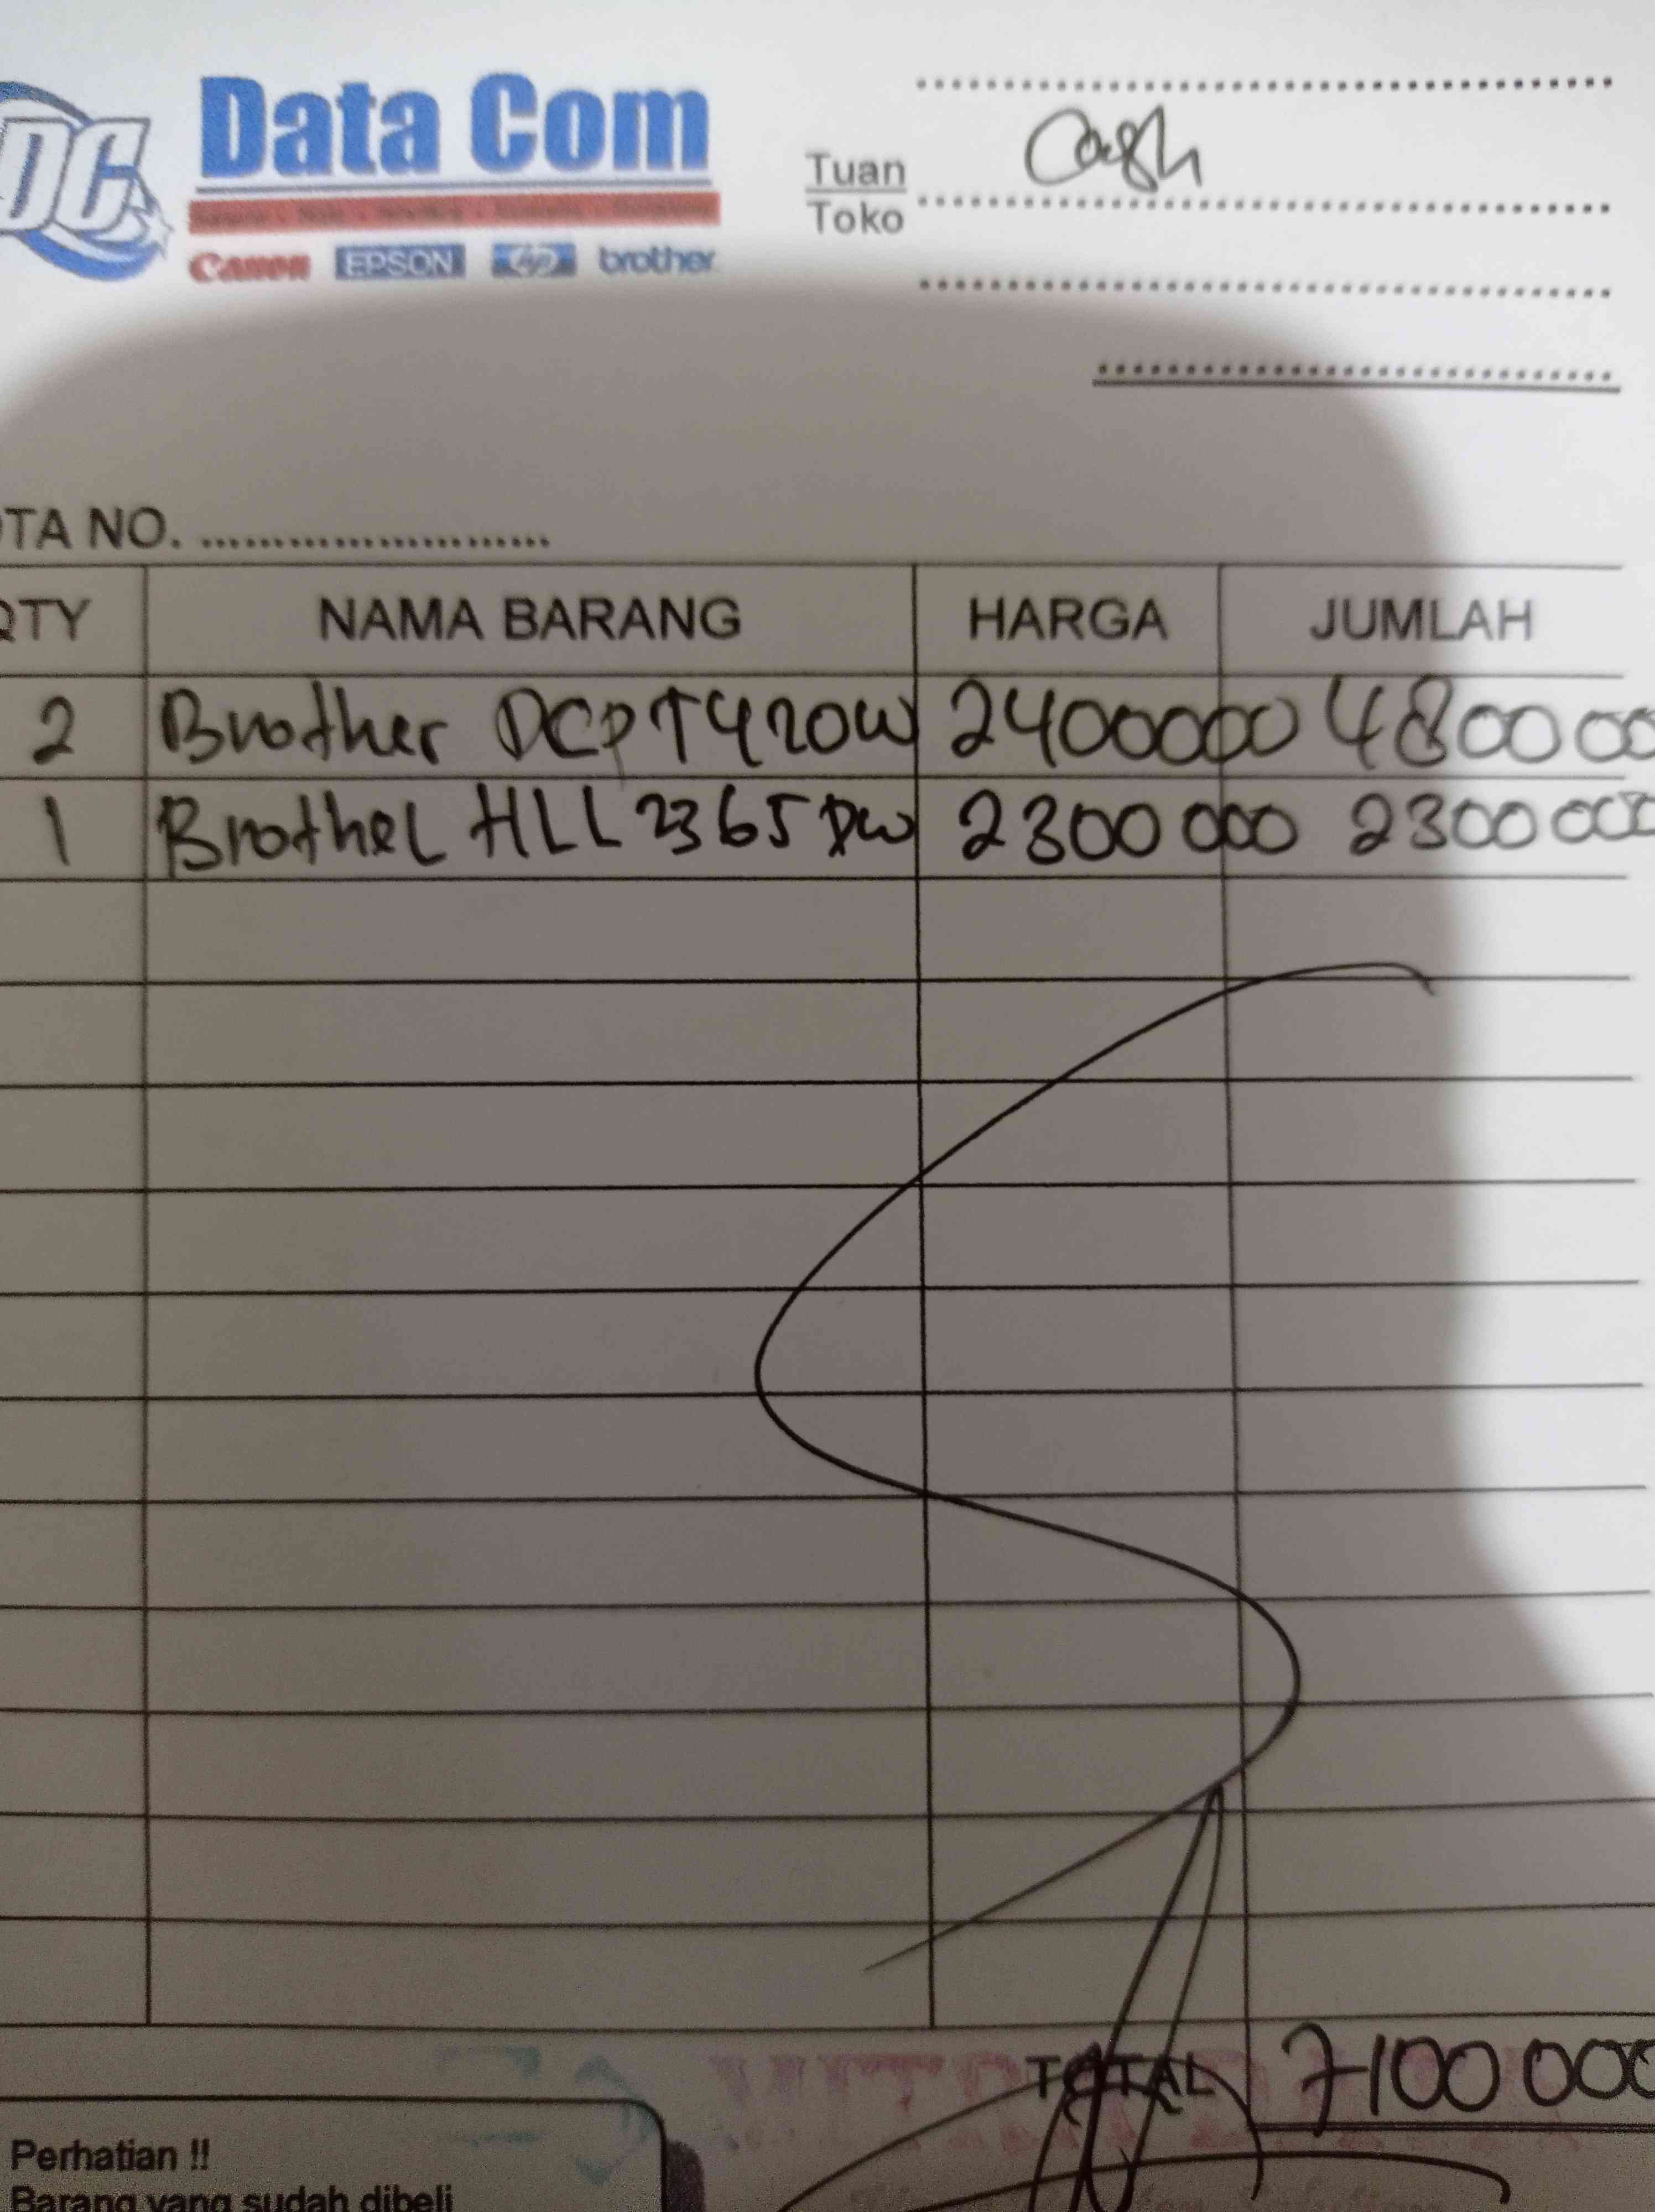 DC Data Com
Canon EPSON hp brother
Tuan Cash
Toko
OTA NO. ........................
QTY NAMA BARANG HARGA JUMLAH
2 Brother DCP T420W 2400000 4800 00
1 Brother HLL 2365 DW 2300 000 2300 000
TOTAL 7100 000
Perhatian !!
Barang yang sudah dibeli